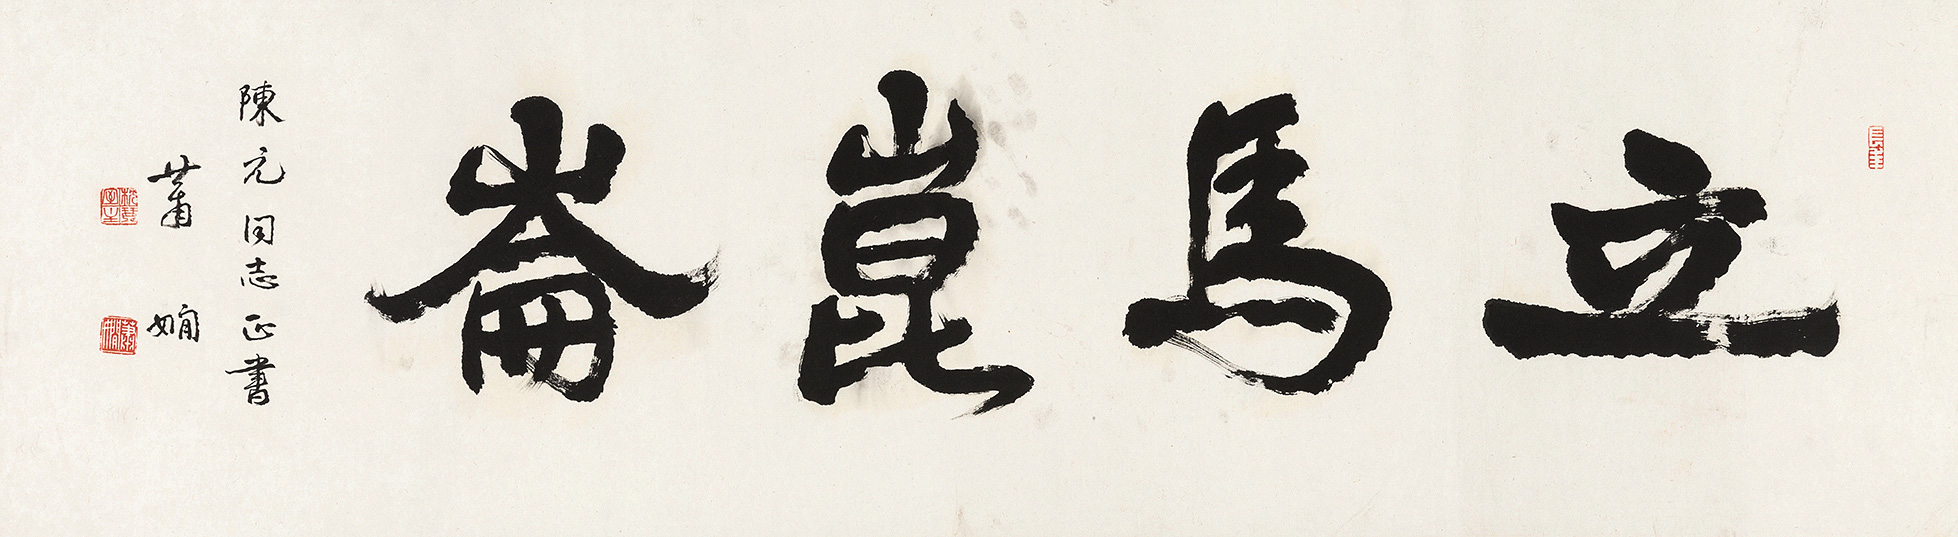 立馬崑崙
陳元同志正書
蕭嫻